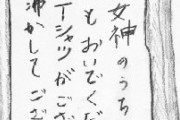 女神のうち
もおいでくだ
ィーシャツがござ
沸かしてござ